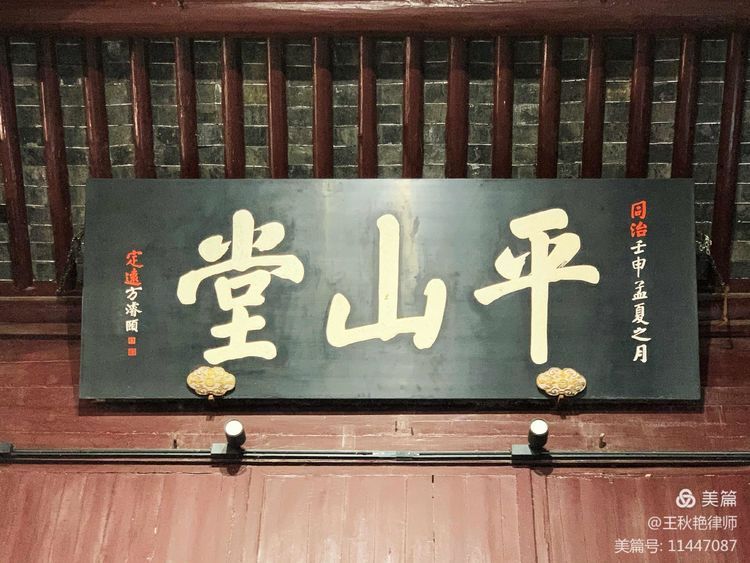 平山堂
同治壬申孟夏之月
定遠方濬頤
美篇
@王秋艳律师
美篇号: 11447087